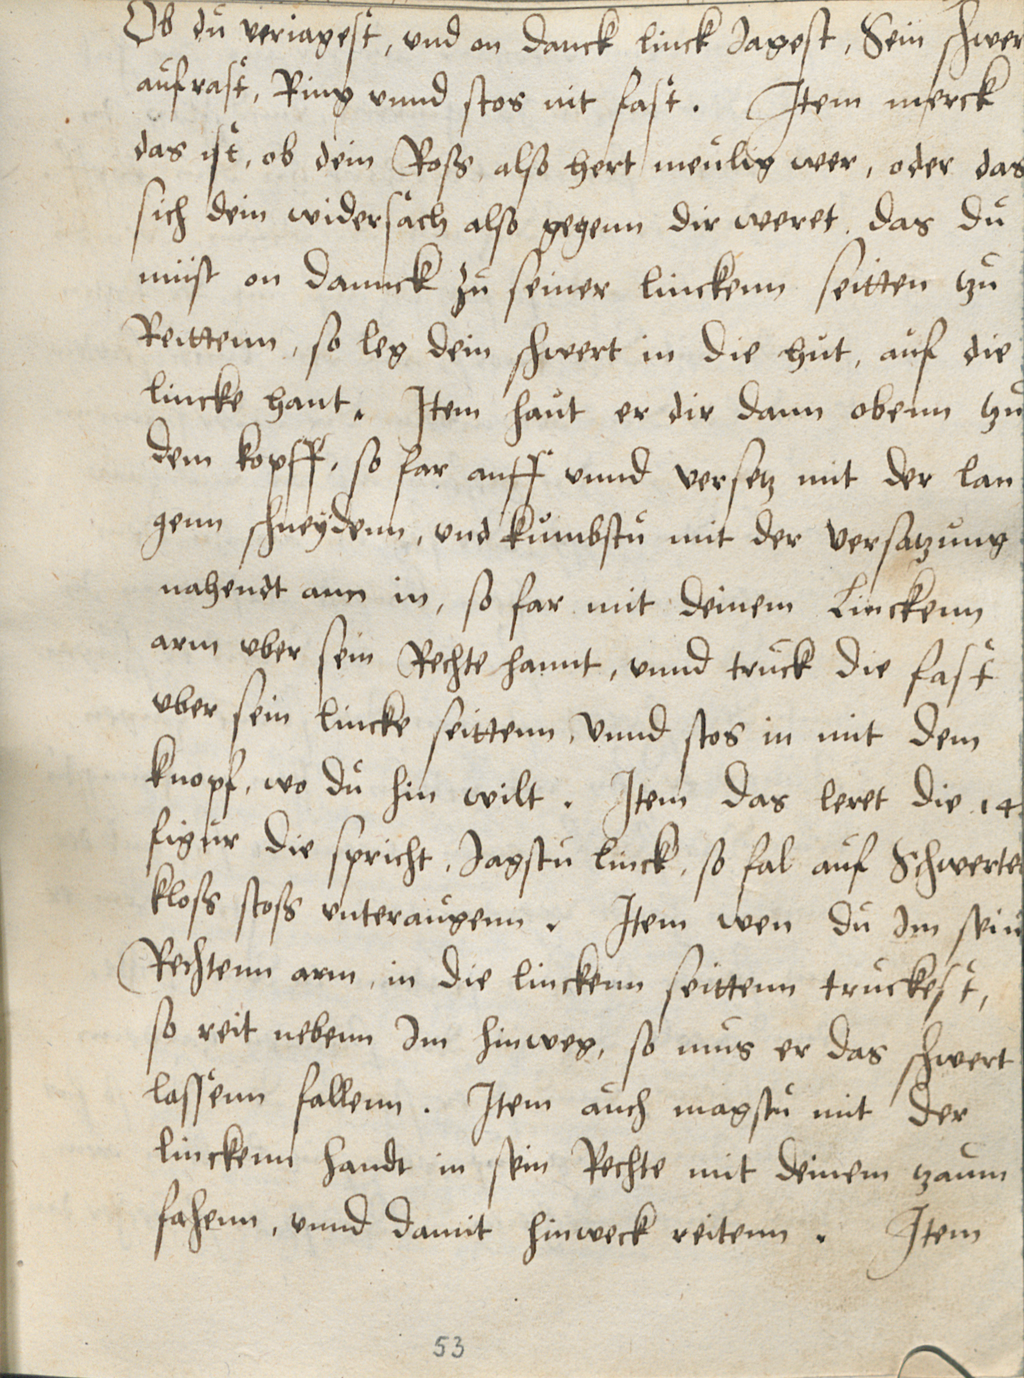 Ob du veriagest, vnd on danck linck Jagest, Sein schwer
aufrast, Ring vnnd stos nit fast. Item merck
das ist, ob dein Ross, also hert meulig wer, oder das
sich dein widersach also gegenn dir weret, das du
müst on dannck zu seiner linckenn seitten tzu
Reittenn, so leg dein schwert in die hut, auf die
lincke hant. Item haut er dir dann obenn tzu
dem kopff, so far auff vnnd versetz mit der lan
genn schneydenn, vnd kumbstu mit der versatzung
nahendt ann in, so far mit deinem Linckenn
arm vber sein Rechte hannt, vnnd truck die fast
vber sein lincke seittenn, vnnd stos in mit dem
knopf, wo du hin wilt. Item das leret die 14
figur die spricht, Jagstu linck, so fal auf Schwertes
kloss stoss vnteraugenn. Item wen du Im sein
Rechtenn arm, in die linckenn seittenn truckest,
so reit nebenn Im hinweg, so mus er das schwert
lassenn fallenn. Item auch magstu mit der
linckenn handt in sein Rechte mit deinem tzaum
fahenn, vnnd damit hinweck reitenn. Item
53